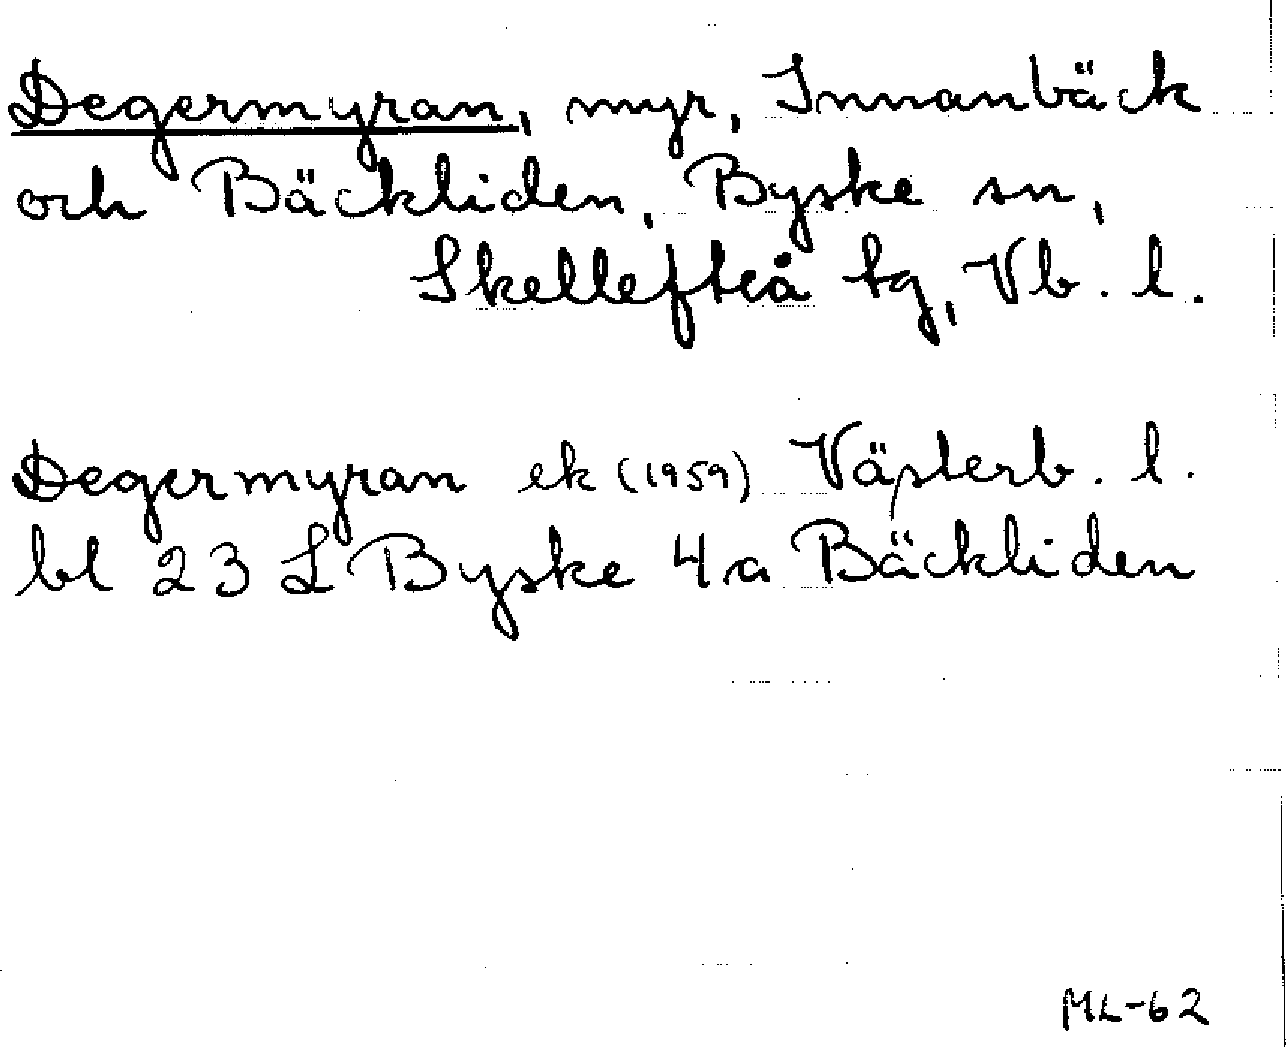 Degermyran, myr, Innanbäck
och Bäckliden, Byske sn,
Skellefteå tg, Vb. l.
Degermyran ek (1959) Västerb. l.
bl 23 L Byske 4 a Bäckliden
ML-62